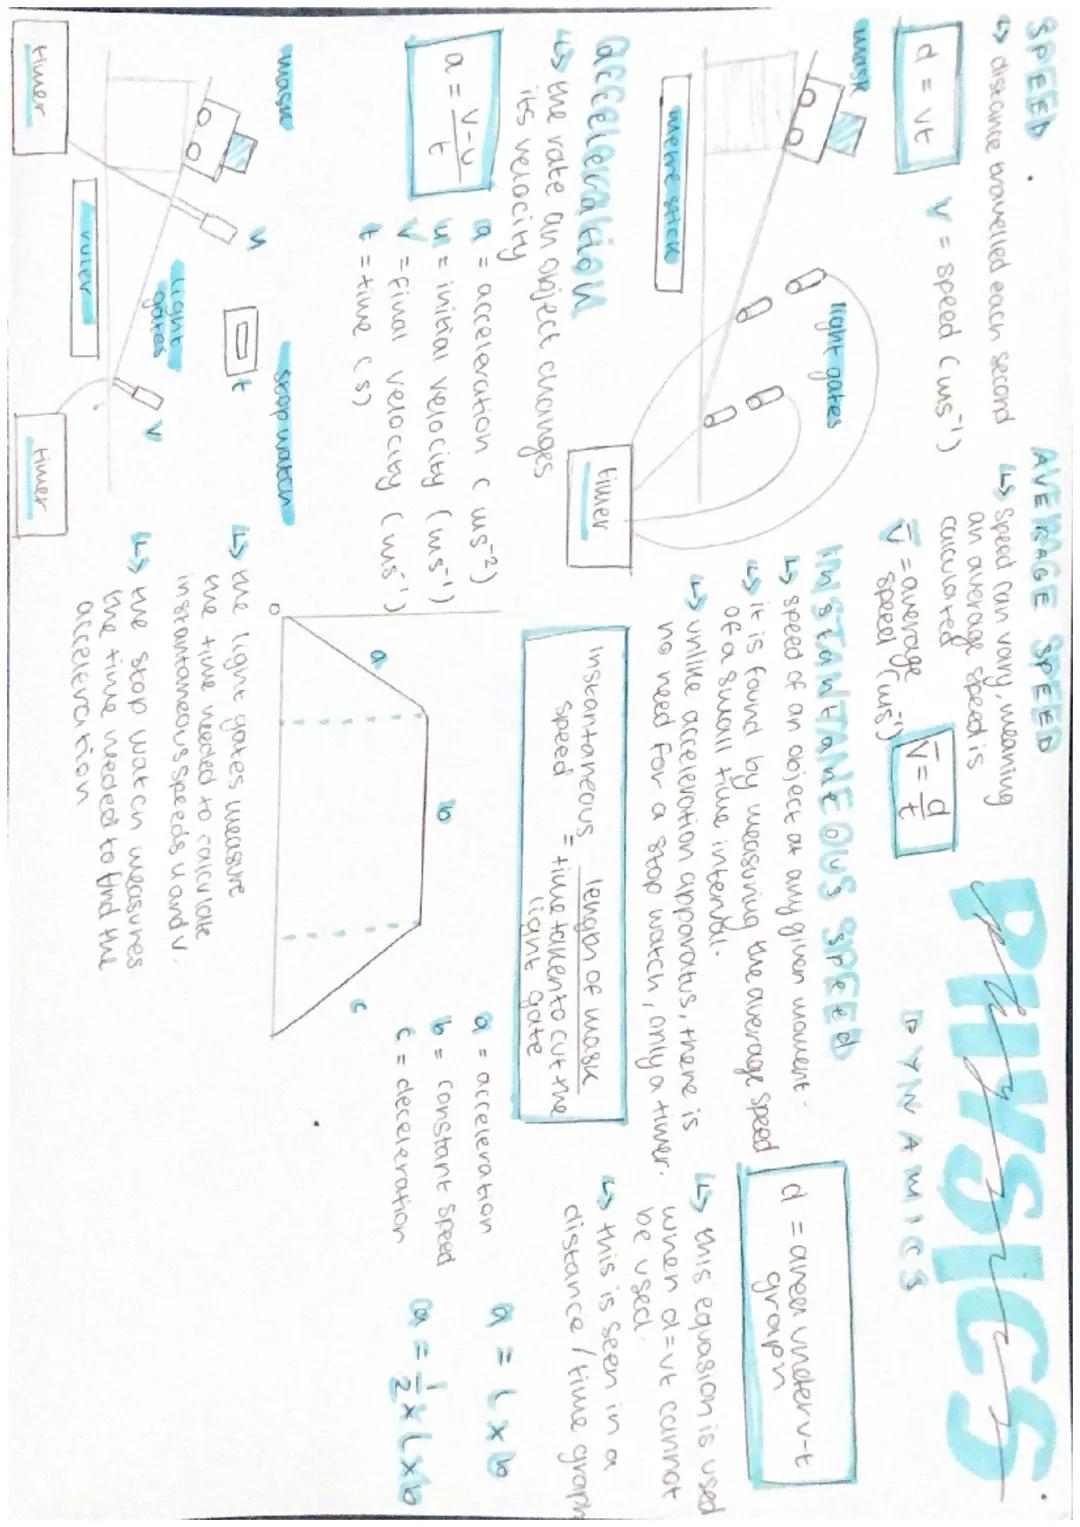 PHYSICS
DYNAMICS
SPEED
↳ distance travelled each second
d = vt
v = speed (ms⁻¹)
AVERAGE SPEED
↳ speed can vary, meaning
an average speed is
calculated
v̄ = average
speed (ms⁻¹)
v̄ = d/t
mask
light gates
metre stick
timer
INSTANTANEOUS SPEED
↳ speed of an object at any given moment.
↳ it is found by measuring the average speed
of a small time interval.
↳ unlike acceleration apparatus, there is
no need for a stop watch, only a timer.
instantaneous speed = length of mask / time taken to cut the light gate
d = area under v-t
graph
↳ this equasion is used
when d=vt cannot
be used.
↳ this is seen in a
distance/time graph
acceleration
↳ the rate an object changes
its velocity
a = v-u/t
a = acceleration (ms⁻²)
u = initial velocity (ms⁻¹)
v = final velocity (ms⁻¹)
t = time (s)
mask
u
stopwatch
t
light
gates
v
ruler
timer
timer
↳ the light gates measure
the time needed to calculate
instantaneous speeds u and v.
↳ the stop watch measures
the time needed to find the
acceleration
0
a
b
c
a = acceleration
b = constant speed
c = deceleration
a = l x b
a = 1/2 x l x b